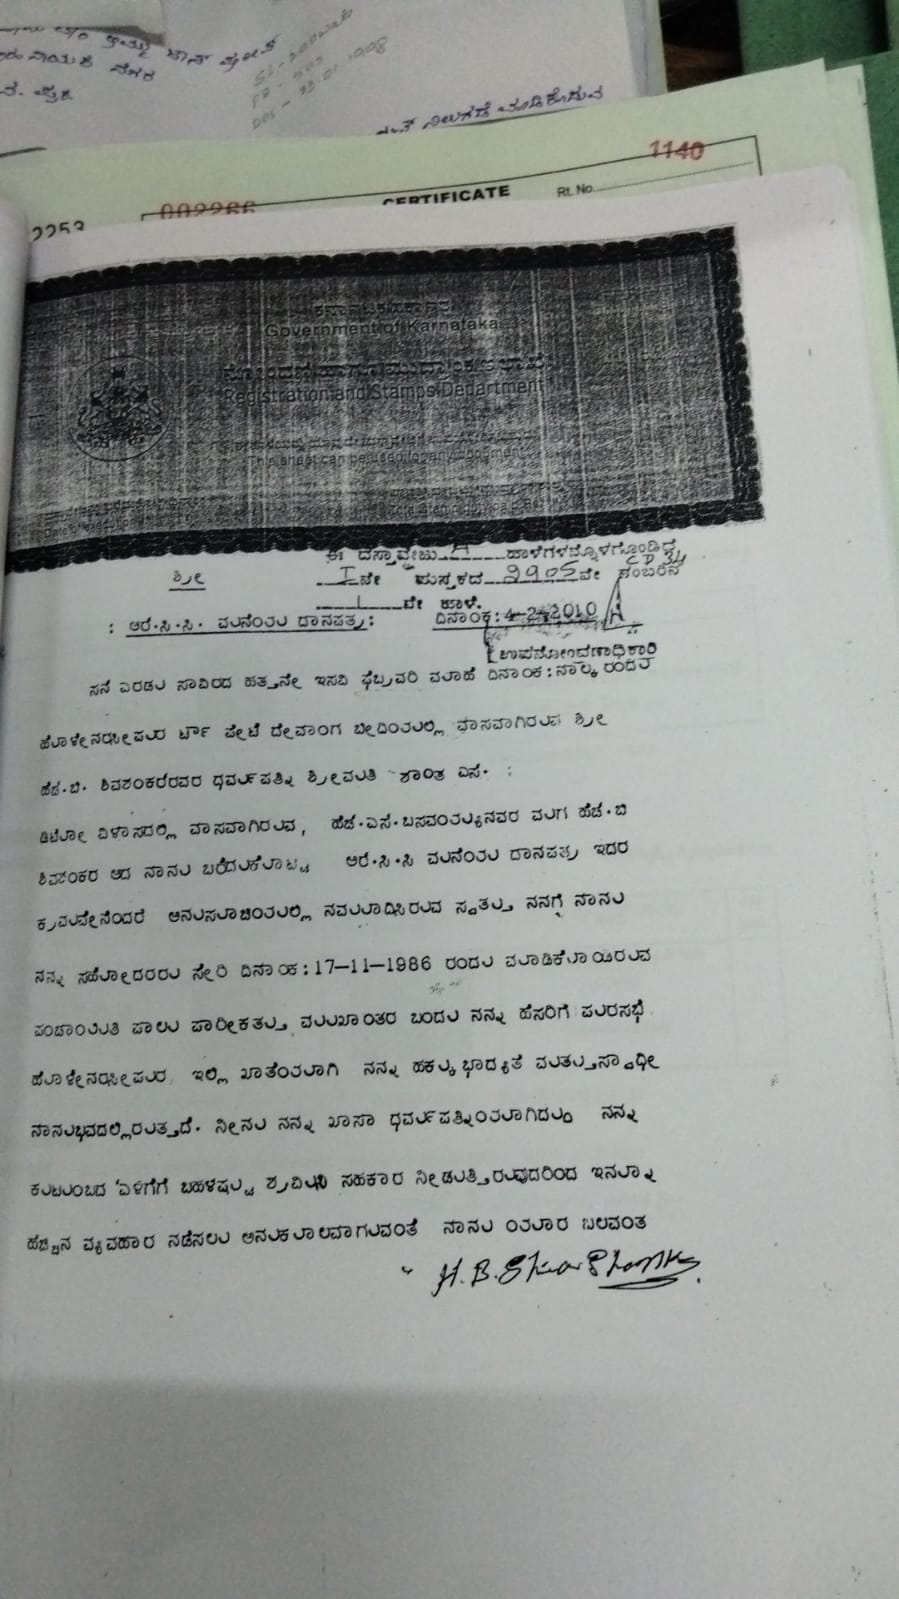 ನಿಲುಗಡೆ ಮಾಡಿಕೊಡುವ
1140
002266 CERTIFICATE Rt. No.
2253
Government of Karnataka
Registration and Stamps Department
This sheet can be used for any document
ಈ ದಸ್ತಾವೇಜು ಹಾಳೆಗಳನ್ನೊಳಗೊಂಡಿದ್ದು
ಶ್ರೀ
I ನೇ ಪುಸ್ತಕದ 2905ನೇ ನಂಬರಿನ
1 ನೇ ಹಾಳೆ.
: ಆರ್.ಸಿ.ಸಿ. ಮನೆಯ ದಾನಪತ್ರ: ದಿನಾಂಕ: 4-2-2010
ಉಪನೋಂದಣಾಧಿಕಾರಿ
ಸನ್ ಎರಡು ಸಾವಿರದ ಹತ್ತನೇ ಇಸವಿ ಫೆಬ್ರವರಿ ಮಾಹೆ ದಿನಾಂಕ: ನಾಲ್ಕು ರಂದು
ಹೊಳೇನರಸೀಪುರ ಟೌನ್ ಪೇಟೆ ದೇವಾಂಗ ಬೀದಿಯಲ್ಲಿ ವಾಸವಾಗಿರುವ ಶ್ರೀ
ಹೆಚ್.ಬಿ. ಶಿವಶಂಕರ್‌ರವರ ಧರ್ಮಪತ್ನಿ ಶ್ರೀಮತಿ ಶಾಂತ ಎಸ್. :
ಡಿಟೋ ವಿಳಾಸದಲ್ಲಿ ವಾಸವಾಗಿರುವ, ಹೆಚ್.ಎಸ್.ಬಸವಂತಯ್ಯನವರ ಮಗ ಹೆಚ್.ಬಿ
ಶಿವಶಂಕರ ಆದ ನಾನು ಬರೆದುಕೊಟ್ಟ ಆರ್.ಸಿ.ಸಿ ಮನೆಯ ದಾನಪತ್ರ ಇದರ
ಕ್ರಮವೇನೆಂದರೆ ಅನುಸೂಚಿಯಲ್ಲಿ ನಮೂದಿಸಿರುವ ಸ್ವತ್ತು ನನಗೆ ನಾನು
ನನ್ನ ಸಹೋದರರು ಸೇರಿ ದಿನಾಂಕ:17-11-1986 ರಂದು ಮಾಡಿಕೊಂಡಿರುವ
ಪಂಚಾಯಿತಿ ಪಾಲು ಪಾರೀಕತ್ತು ಮುಖಾಂತರ ಬಂದು ನನ್ನ ಹೆಸರಿಗೆ ಪುರಸಭೆ
ಹೊಳೇನರಸೀಪುರ ಇಲ್ಲಿ ಖಾತೆಯಾಗಿ ನನ್ನ ಹಕ್ಕುಭಾದ್ಯತೆ ಮತ್ತು ಸ್ವಾಧೀ
ನಾನುಭವದಲ್ಲಿರುತ್ತದೆ. ನೀನು ನನ್ನ ಖಾಸಾ ಧರ್ಮಪತ್ನಿಯಾಗಿದ್ದು ನನ್ನ
ಕುಟುಂಬದ ಏಳಿಗೆಗೆ ಬಹಳಷ್ಟು ಶ್ರಮಿಸಿ ಸಹಕಾರ ನೀಡುತ್ತಿರುವುದರಿಂದ ಇನ್ನೂ
ಹೆಚ್ಚಿನ ವ್ಯವಹಾರ ನಡೆಸಲು ಅನುಕೂಲವಾಗುವಂತೆ ನಾನು ಯಾರ ಬಲವಂತ
H.B.Shiva Shankar